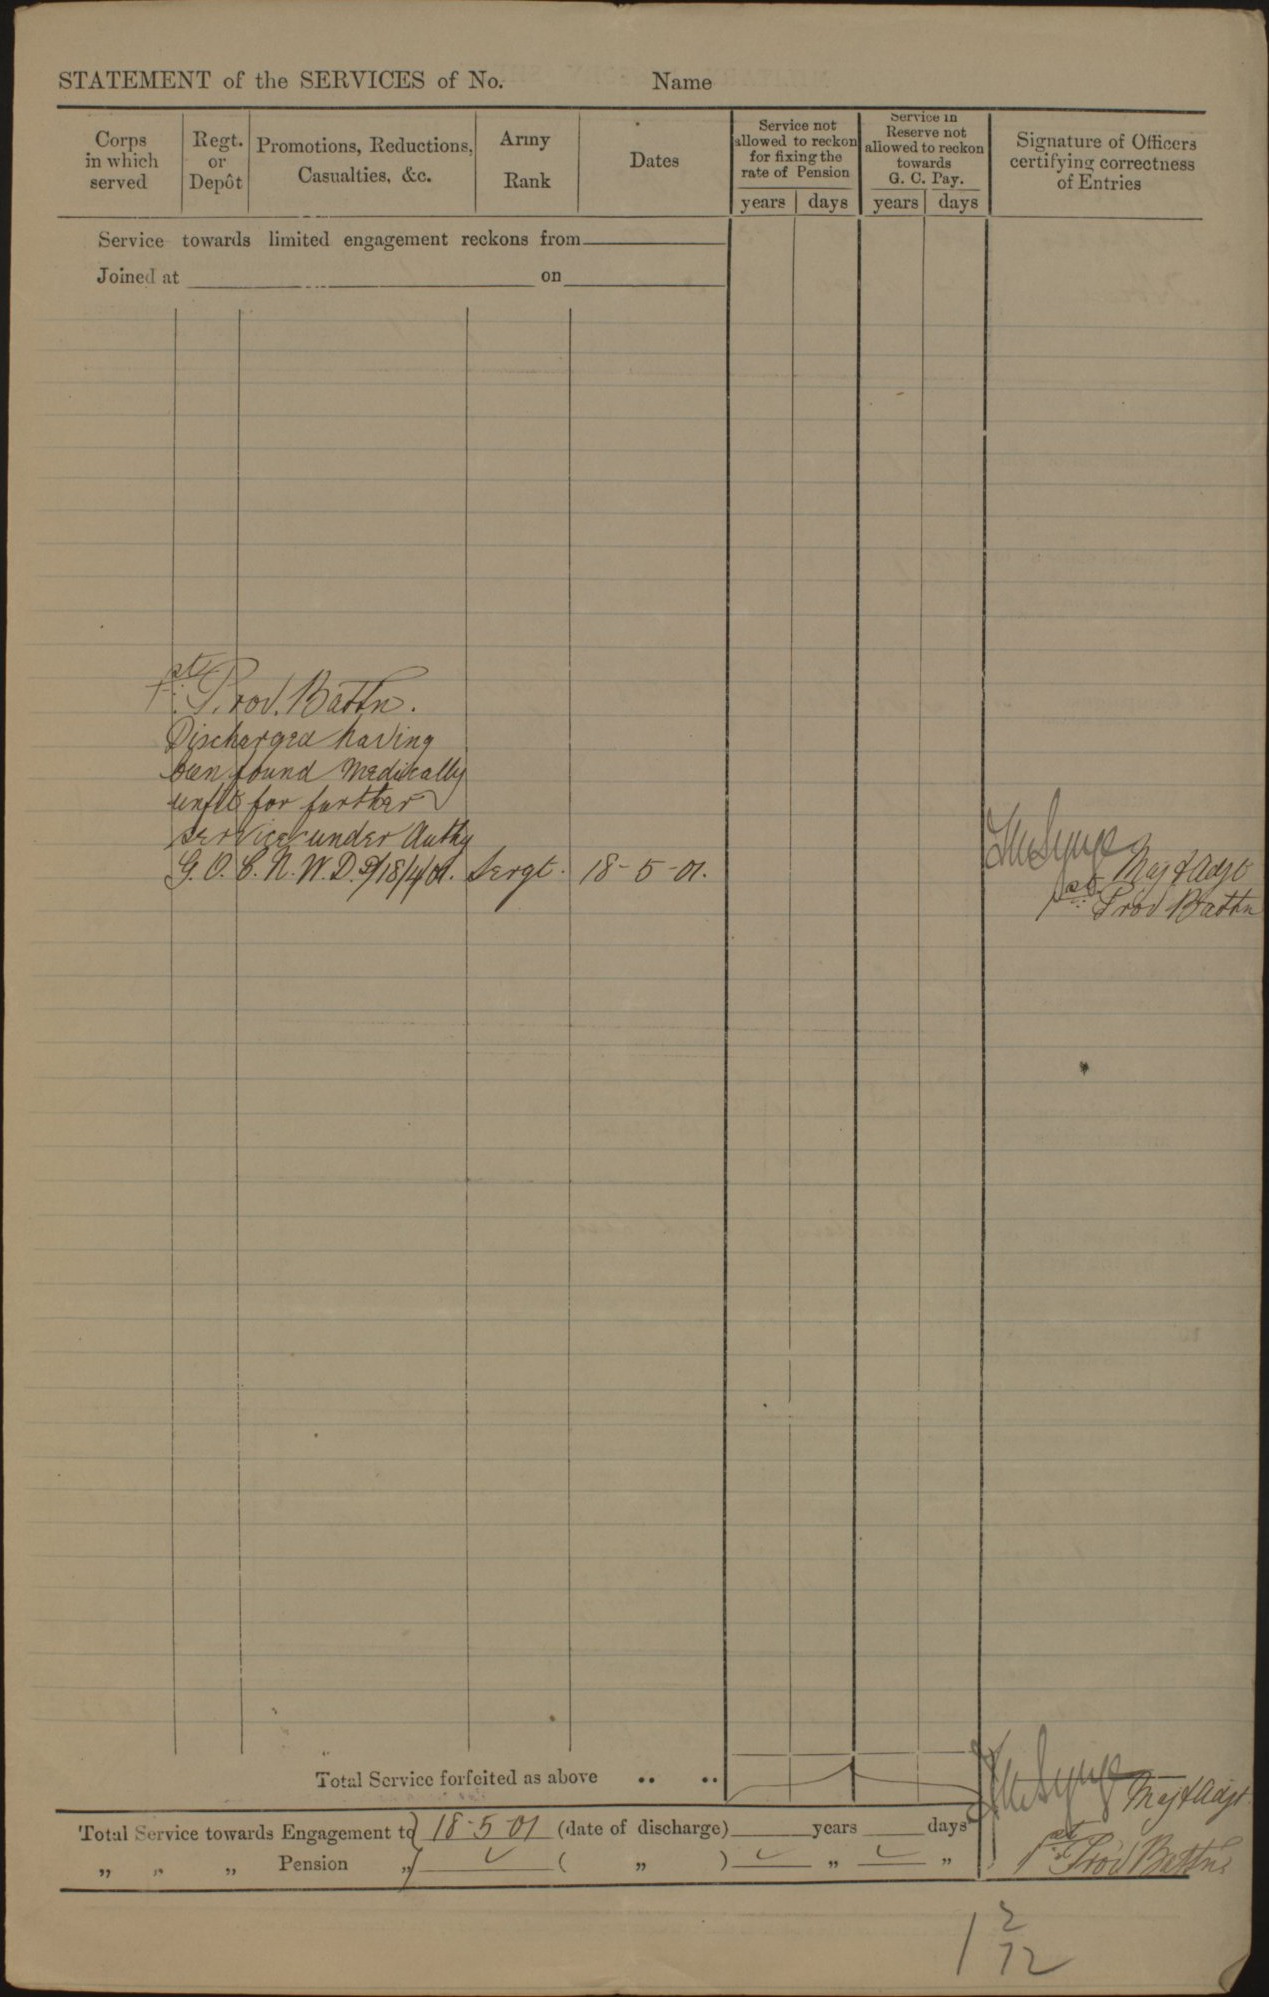 STATEMENT of the SERVICES of No. Name
Corps
in which
served
Regt.
or
Depôt
Promotions, Reductions,
Casualties, &c.
Army
Rank
Dates
Service not
allowed to reckon
for fixing the
rate of Pension
years days
Service in
Reserve not
allowed to reckon
towards
G. C. Pay.
years days
Signature of Officers
certifying correctness
of Entries
Service towards limited engagement reckons from
Joined at on
1st Prov. Battn.
Discharged having
been found medically
unfit for further
service under Authy
G. O. C. N. W. D. d/18/4/01. Sergt. 18-5-01.
Synge Maj & Adjt
1st Prov Battn
Total Service forfeited as above .. ..
Total Service towards Engagement to 18-5-01 (date of discharge) years days
„ „ „ Pension „ ( „ ) „ „
Synge Maj & Adjt.
1st Prov Battn
1 2
72